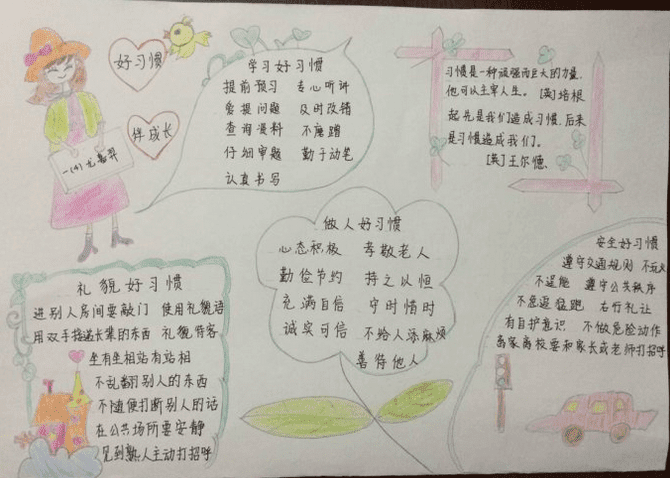 好习惯
伴成长
一(4)
学习好习惯
提前预习 专心听讲
爱提问题 及时改错
查询资料 不磨蹭
仔细审题 勤于动笔
认真书写
习惯是一种顽强而巨大的力量,
他可以主宰人生。[英]培根
起先是我们造成习惯,后来
是习惯造成我们。
[英]王尔德
做人好习惯
心态积极 孝敬老人
勤俭节约 持之以恒
充满自信 守时惜时
诚实可信 不给人添麻烦
善待他人
礼貌好习惯
进别人房间要敲门 使用礼貌语
用双手接递长辈的东西 礼貌待客
坐有坐相站有站相
不乱翻别人的东西
不随便打断别人的话
在公共场所要安静
见到熟人主动打招呼
安全好习惯
遵守交通规则 不玩火
不逞能 遵守公共秩序
不急追猛跑 右行礼让
有自护意识 不做危险动作
离家离校要和家长或老师打招呼